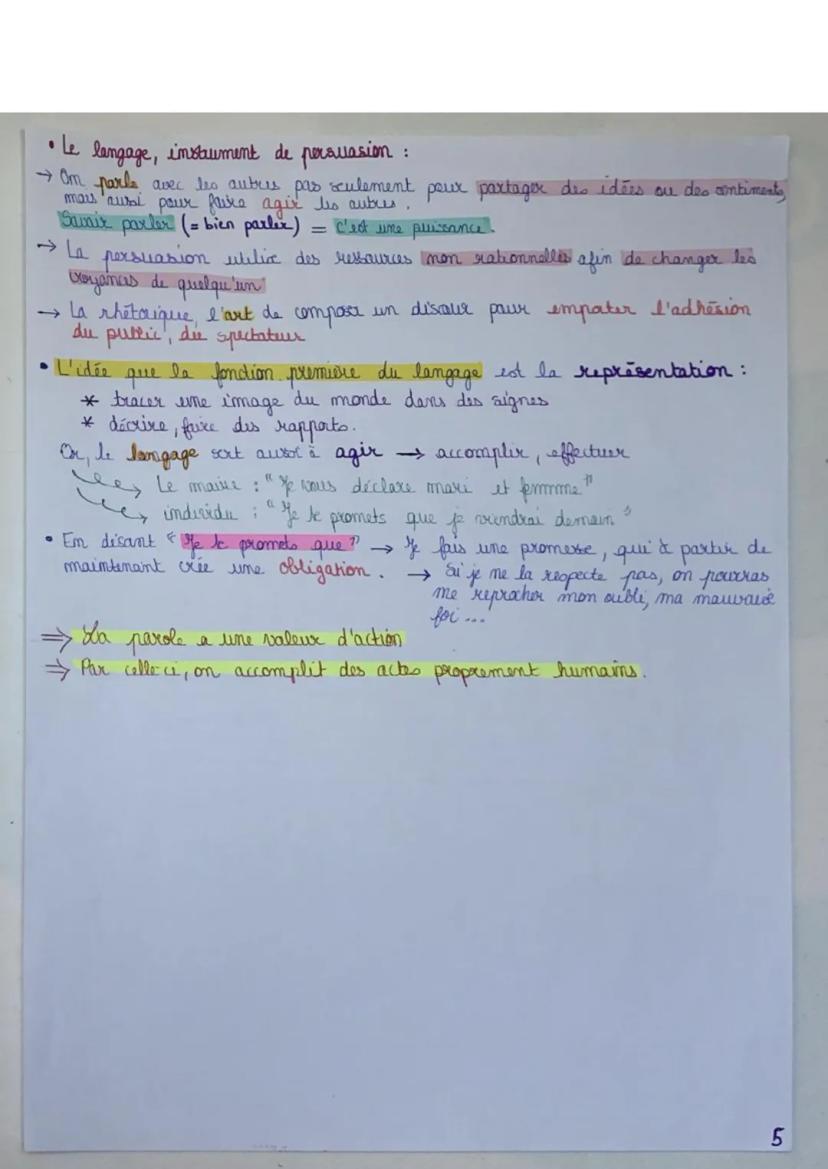 • Le langage, instrument de persuasion :
→ On parle avec les autres pas seulement pour partager des idées ou des sentiments,
mais aussi pour faire agir les autres.
Savoir parler (= bien parler) = C'est une puissance.
→ La persuasion utilise des ressources non rationnelles afin de changer les
croyances de quelqu'un
→ La rhétorique, l'art de composer un discours pour emporter l'adhésion
du public, du spectateur
• L'idée que la fonction première du langage est la représentation :
* tracer une image du monde dans des signes
* décrire, faire des rapports.
Or, le langage sert aussi à agir → accomplir, effectuer
↳ Le maire : "Je vous déclare mari et femme"
↳ individu : "Je te promets que je viendrai demain"
• En disant "Je te promets que" → Je fais une promesse, qui à partir de
maintenant crée une obligation. → Si je ne la respecte pas, on pourras
me reprocher mon oubli, ma mauvaise
foi...
⇒ La parole a une valeur d'action
⇒ Par celle-ci, on accomplit des actes proprement humains.
5